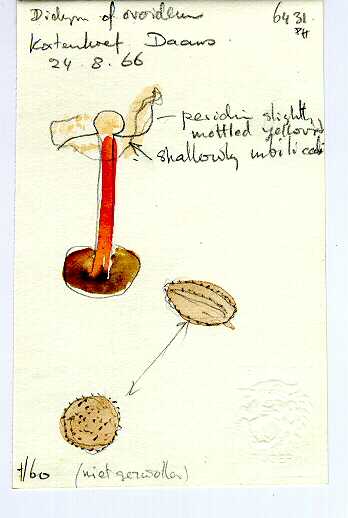 Didym of ovoideum
6431.
PH
Kortenhoef, Daams
24.8.66
peridium slightly
mottled yellowish
shallowly umbilicate
7/60
(niet gezwollen)